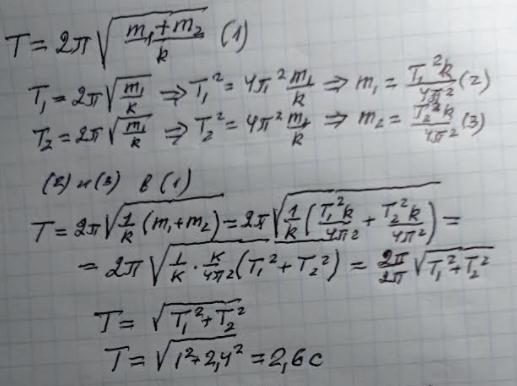 T = 2π√((m₁+m₂)/k) (1)
T₁ = 2π√(m₁/k) ⇒ T₁² = 4π² m₁/k ⇒ m₁ = T₁²k/4π² (2)
T₂ = 2π√(m₁/k) ⇒ T₂² = 4π² m₁/k ⇒ m₂ = T₂²k/4π² (3)
(2) и (3) в (1)
T = 2π√(1/k (m₁+m₂)) = 2π√(1/k (T₁²k/4π² + T₂²k/4π²)) =
= 2π√(1/k · k/4π² (T₁²+T₂²)) = 2π/2π √(T₁²+T₂²)
T = √(T₁²+T₂²)
T = √(1²+2,4²) = 2,6 с